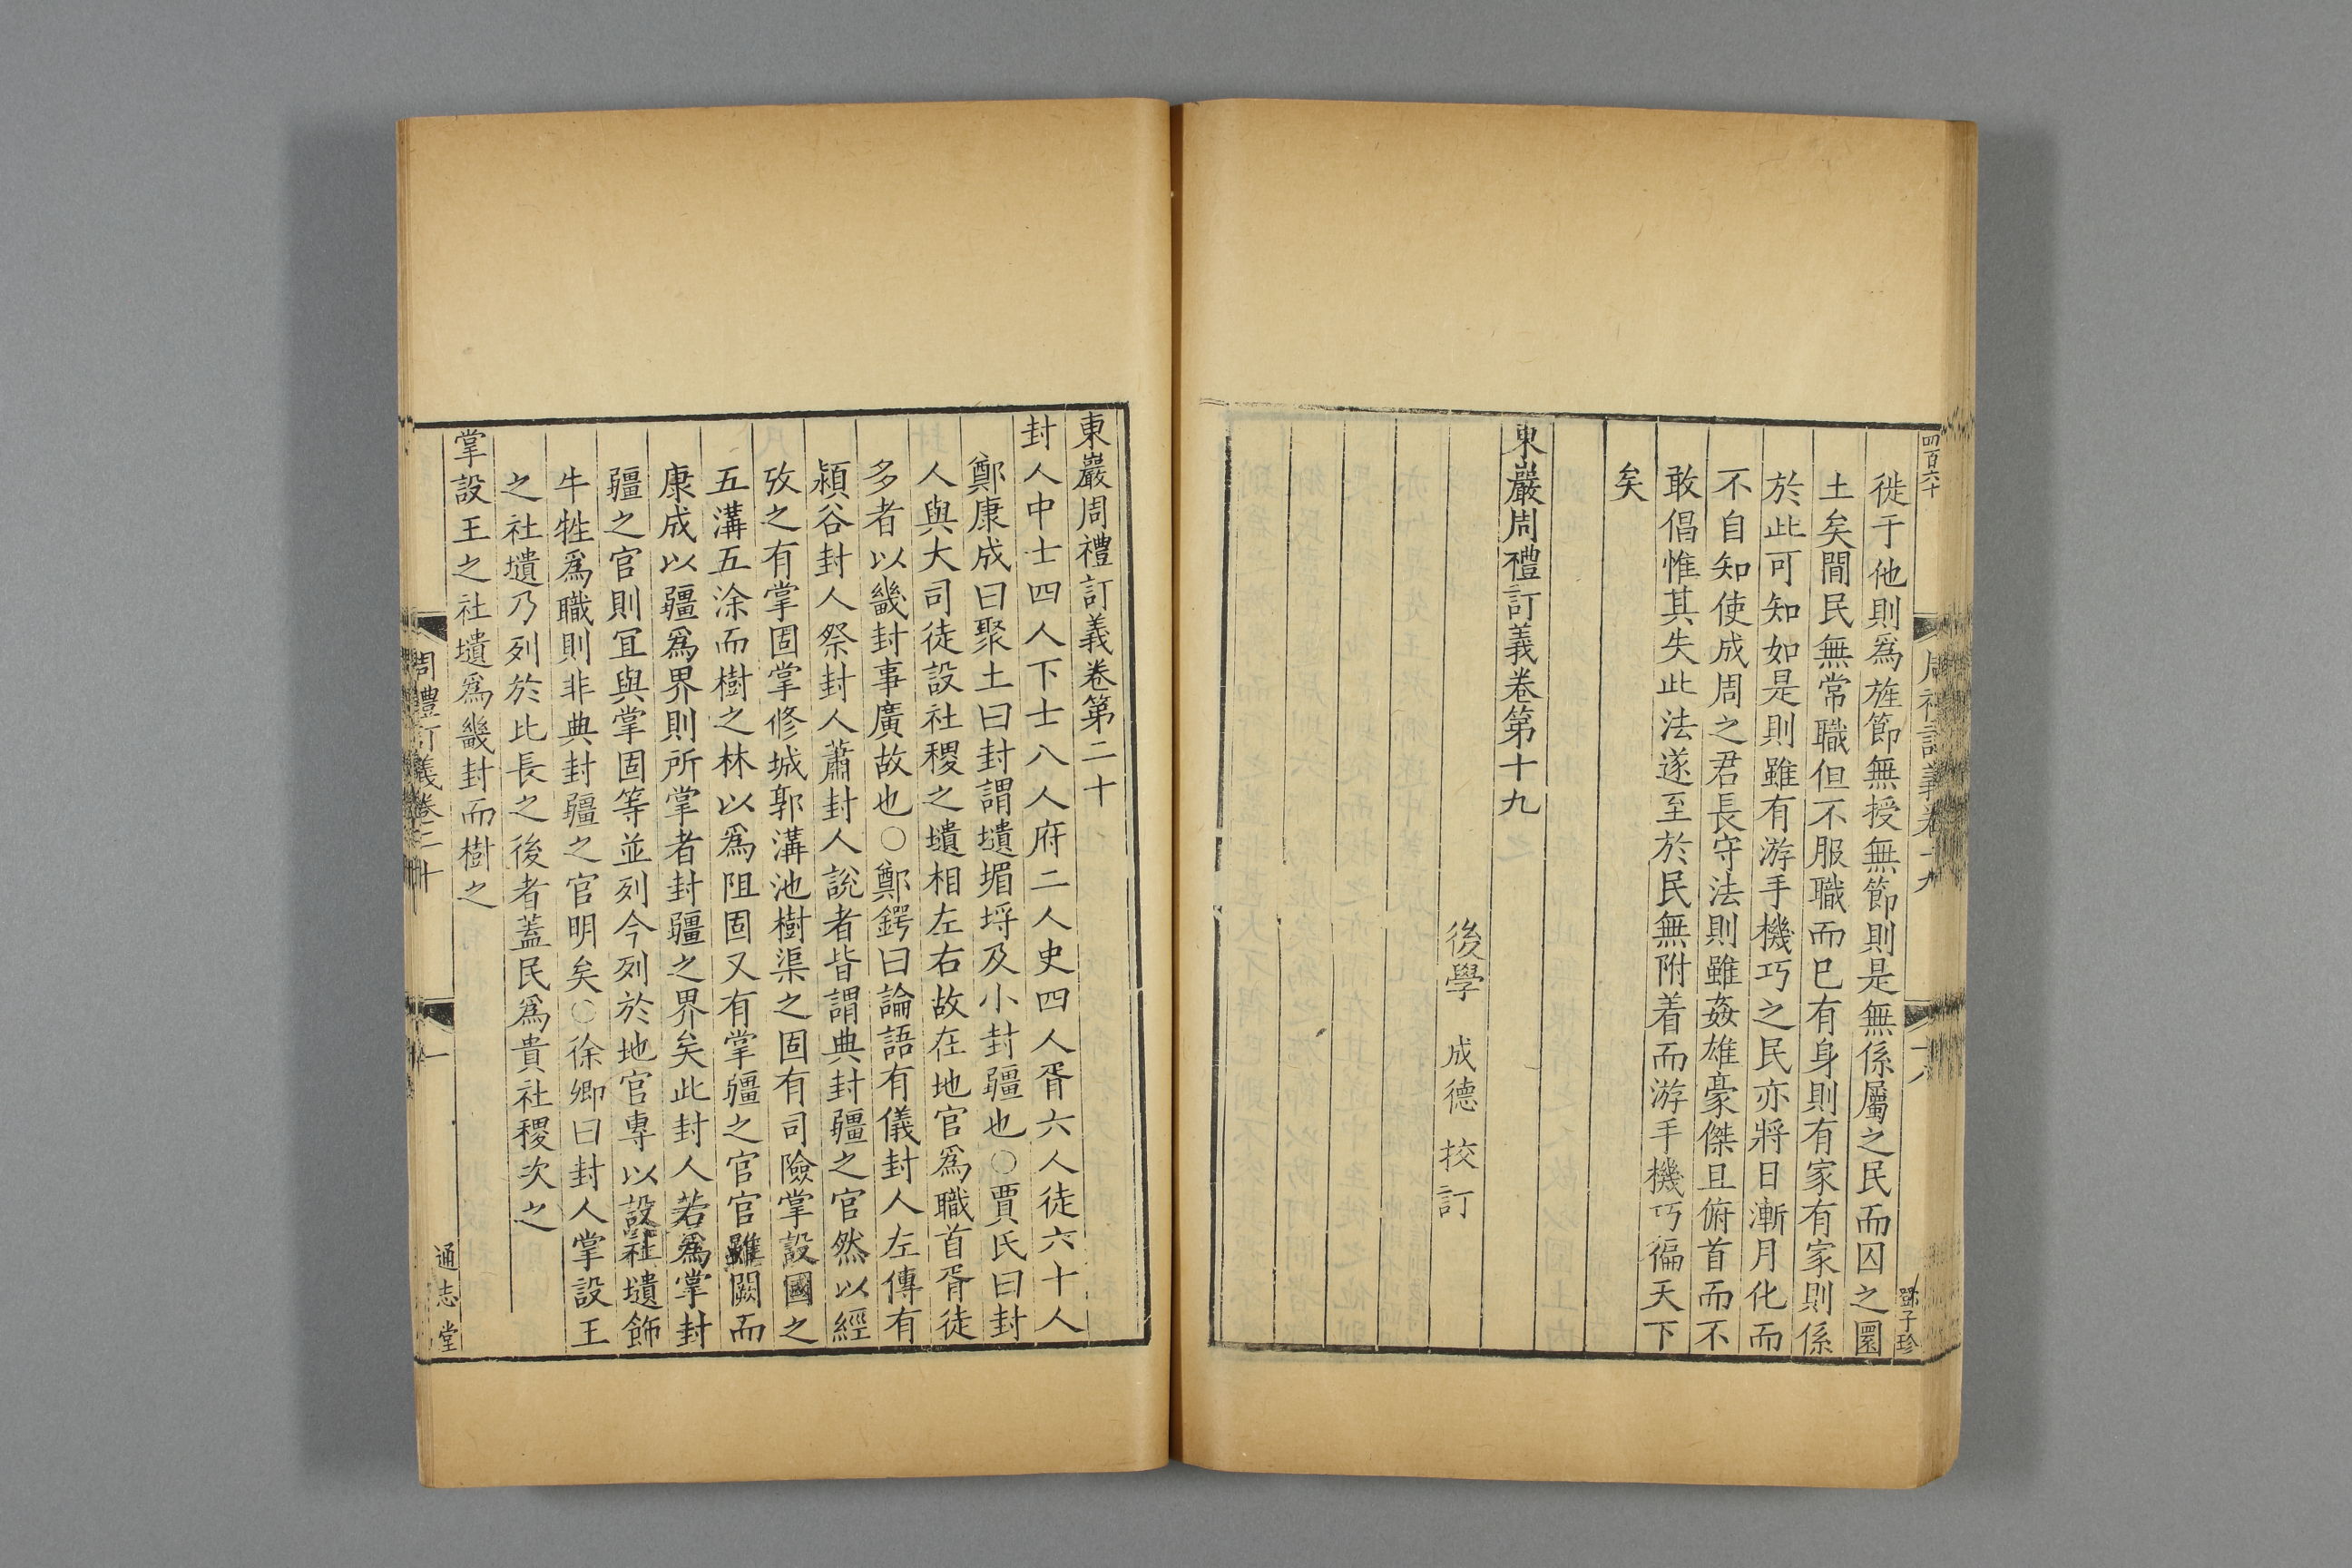 四百六十
周禮訂義卷十九
十八
鄧子珍
徙于他則爲旌節無授無節則是無係屬之民而囚之圜
土矣閒民無常職但不服職而巳有身則有家有家則係
於此可知如是則雖有游手機巧之民亦將日漸月化而
不自知使成周之君長守法則雖姦雄豪傑且俯首而不
敢倡惟其失此法遂至於民無附着而游手機巧徧天下
矣
東巖周禮訂義卷第十九
後學 成德 校訂
東巖周禮訂義卷第二十
封人中士四人下士八人府二人史四人胥六人徒六十人
鄭康成曰聚土曰封謂壝堳埒及小封疆也○賈氏曰封
人與大司徒設社稷之壝相左右故在地官爲職首胥徒
多者以畿封事廣故也○鄭鍔曰論語有儀封人左傳有
潁谷封人祭封人蕭封人說者皆謂典封疆之官然以經
攷之有掌固掌修城郭溝池樹渠之固有司險掌設國之
五溝五涂而樹之林以爲阻固又有掌疆之官官雖闕而
康成以疆爲界則所掌者封疆之界矣此封人若爲掌封
疆之官則宜與掌固等並列今列於地官專以設社壝飾
牛牲爲職則非典封疆之官明矣○徐卿曰封人掌設王
之社壝乃列於比長之後者蓋民爲貴社稷次之
掌設王之社壝爲畿封而樹之
周禮訂義卷二十
一
通志堂